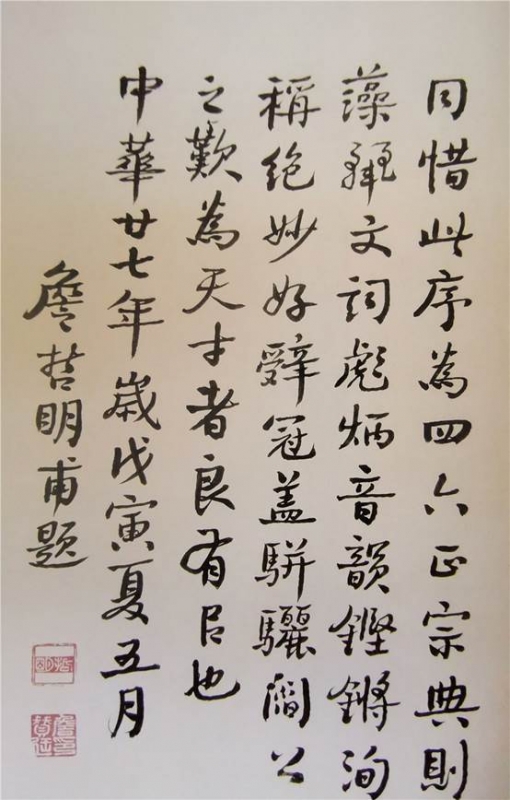 同惜此序為四六正宗典則
藻文詞彪炳音韻鏗鏘洵
稱絕妙好辭冠盖駢驪閻公
之歎為天才者良有㠯也
中華廿七年歲戊寅夏五月
詹哲明甫題
哲明